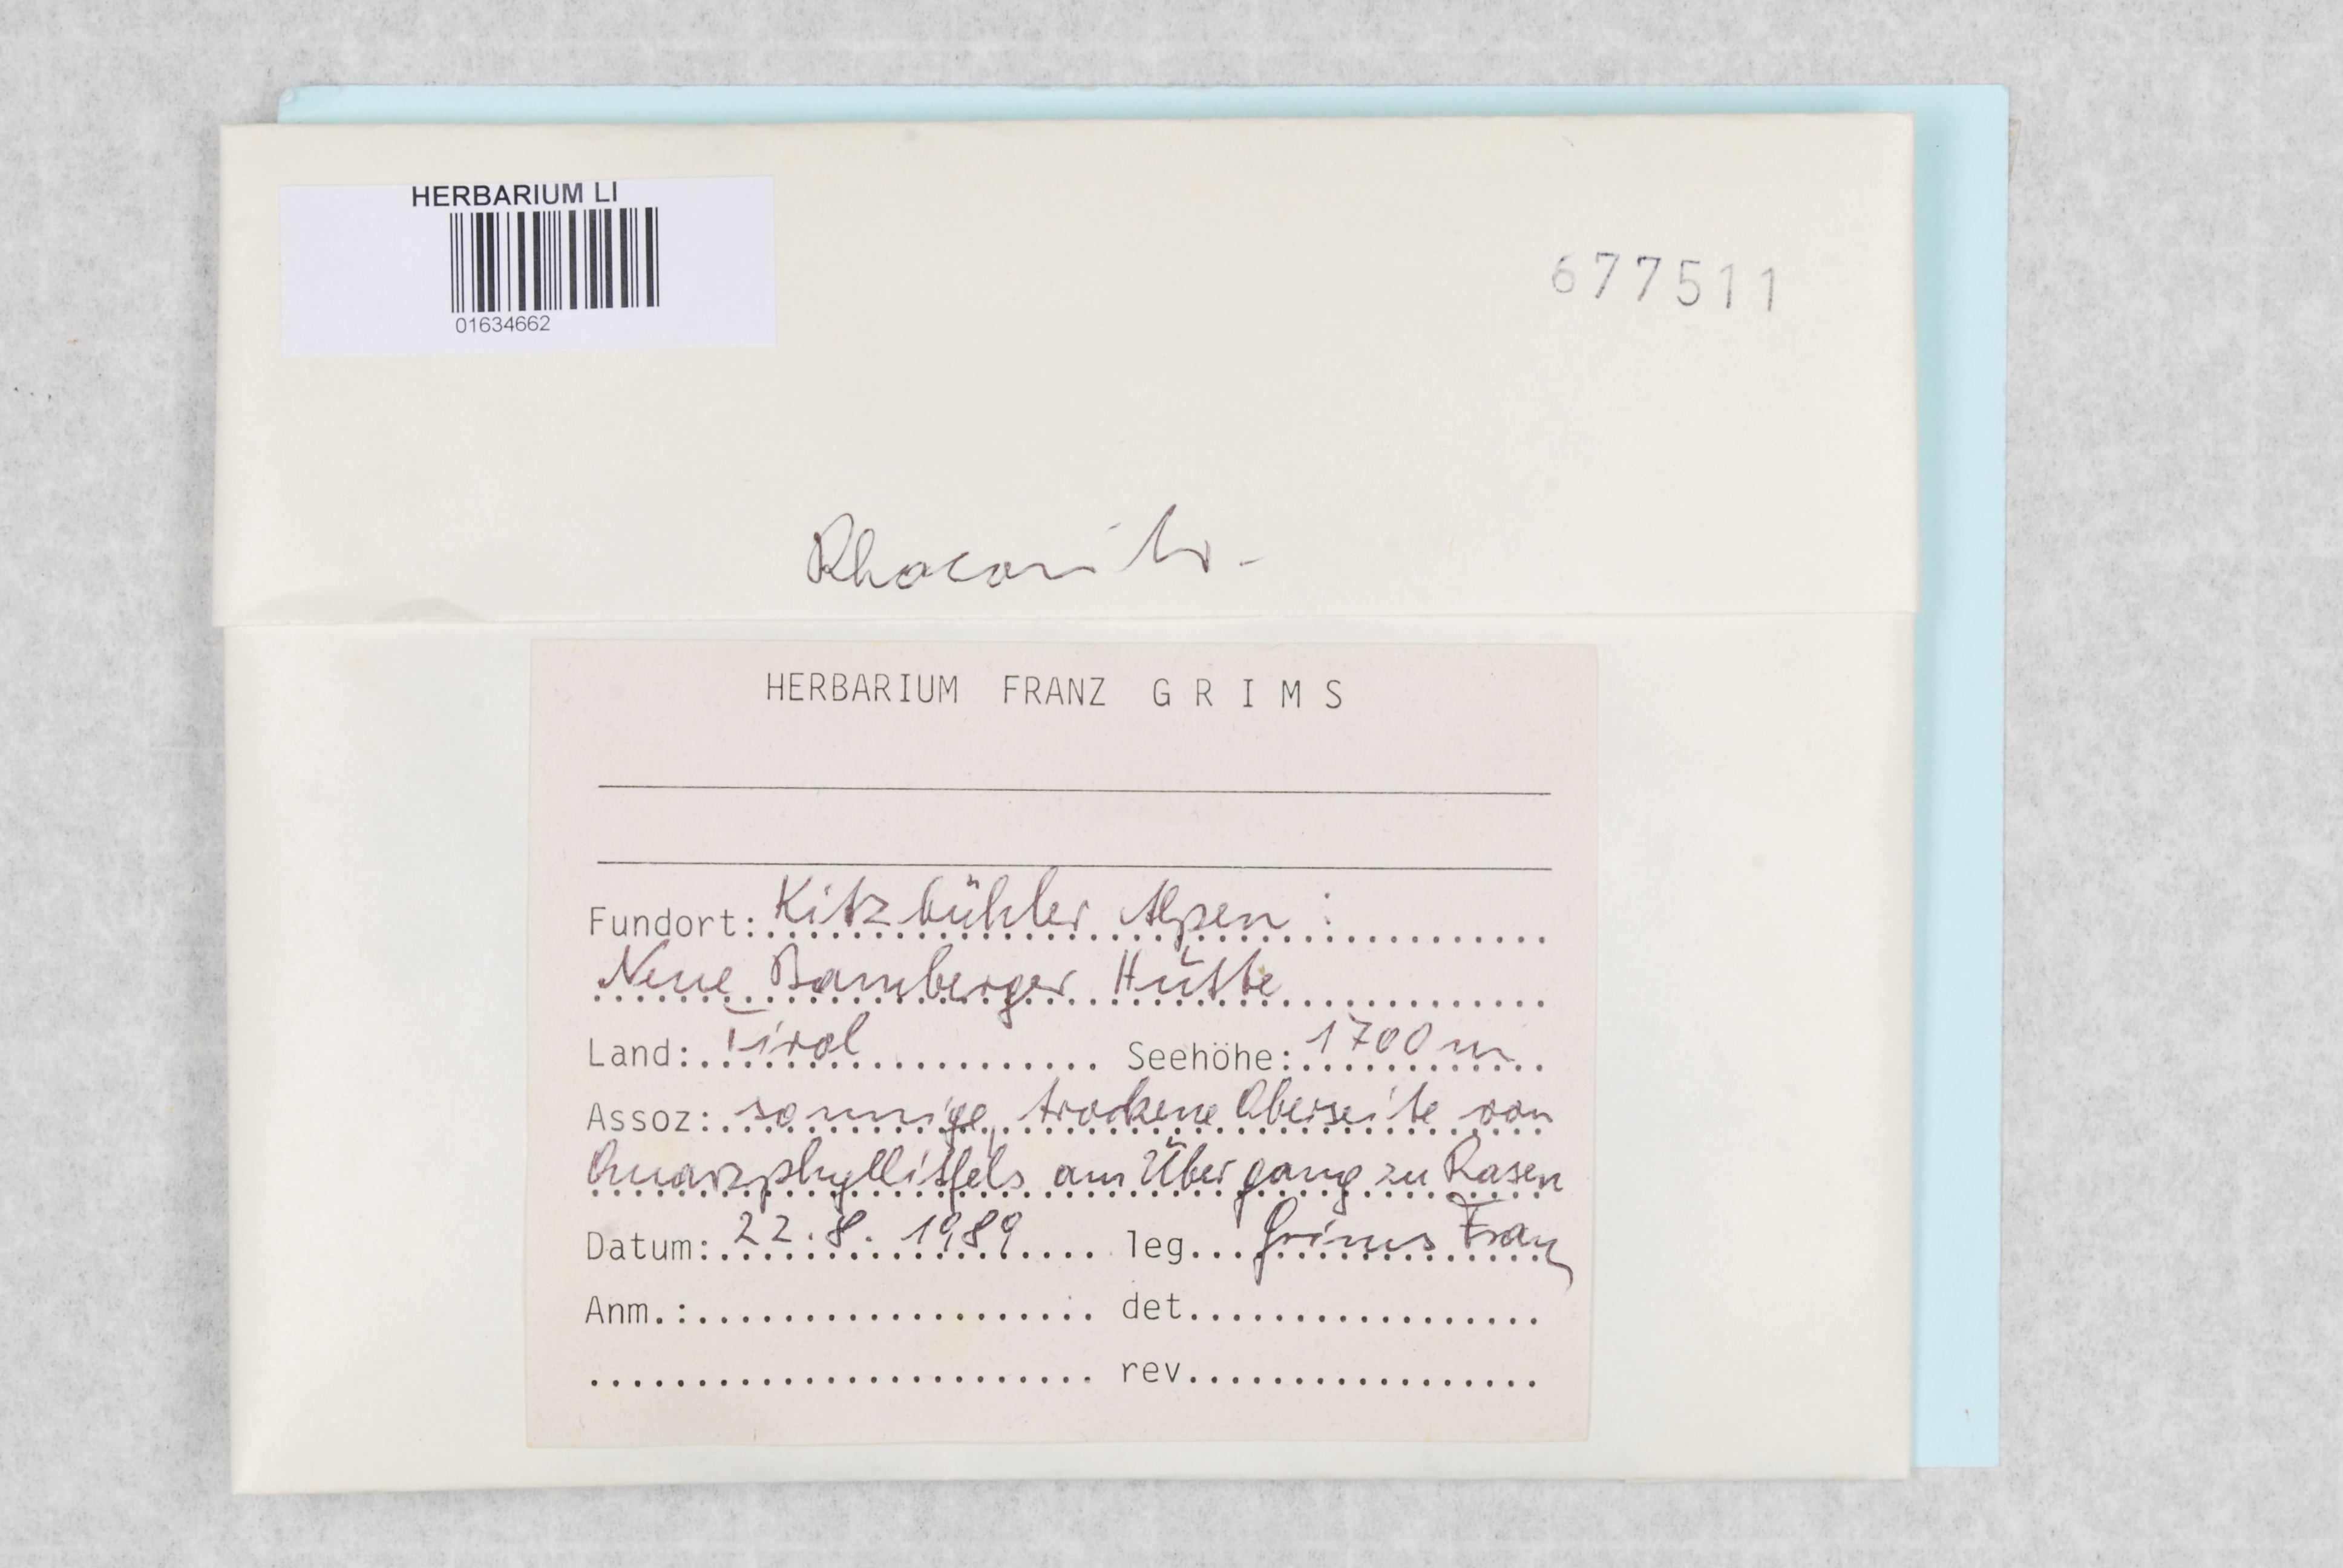 HERBARIUM LI
01634662
677511
HERBARIUM FRANZ GRIMS
Fundort: Kitzbühler Alpen:
Neue Bamberger Hütte
Land: Tirol Seehöhe: 1700 m
Assoz: sonnige, trockene Oberseite von
Quarzphyllitfels am Übergang zu Rasen
Datum: 22.8.1989 leg. Grims Franz
Anm.: det.
rev.